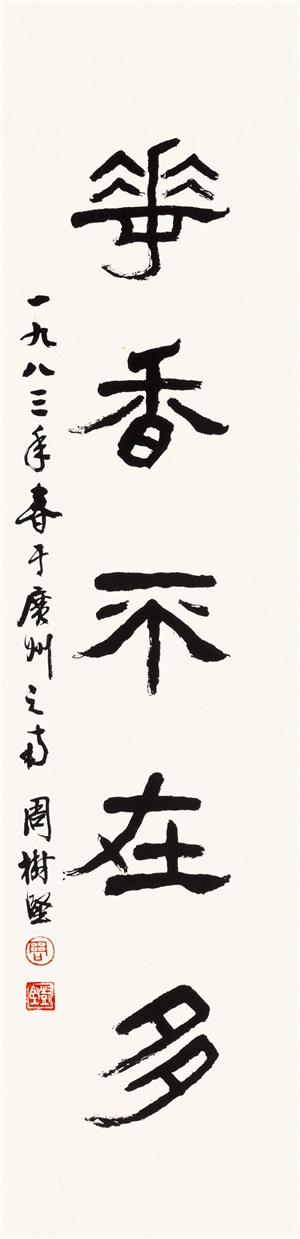 華香不在多
一九八三年春于廣州之南 周樹堅
周
樹堅